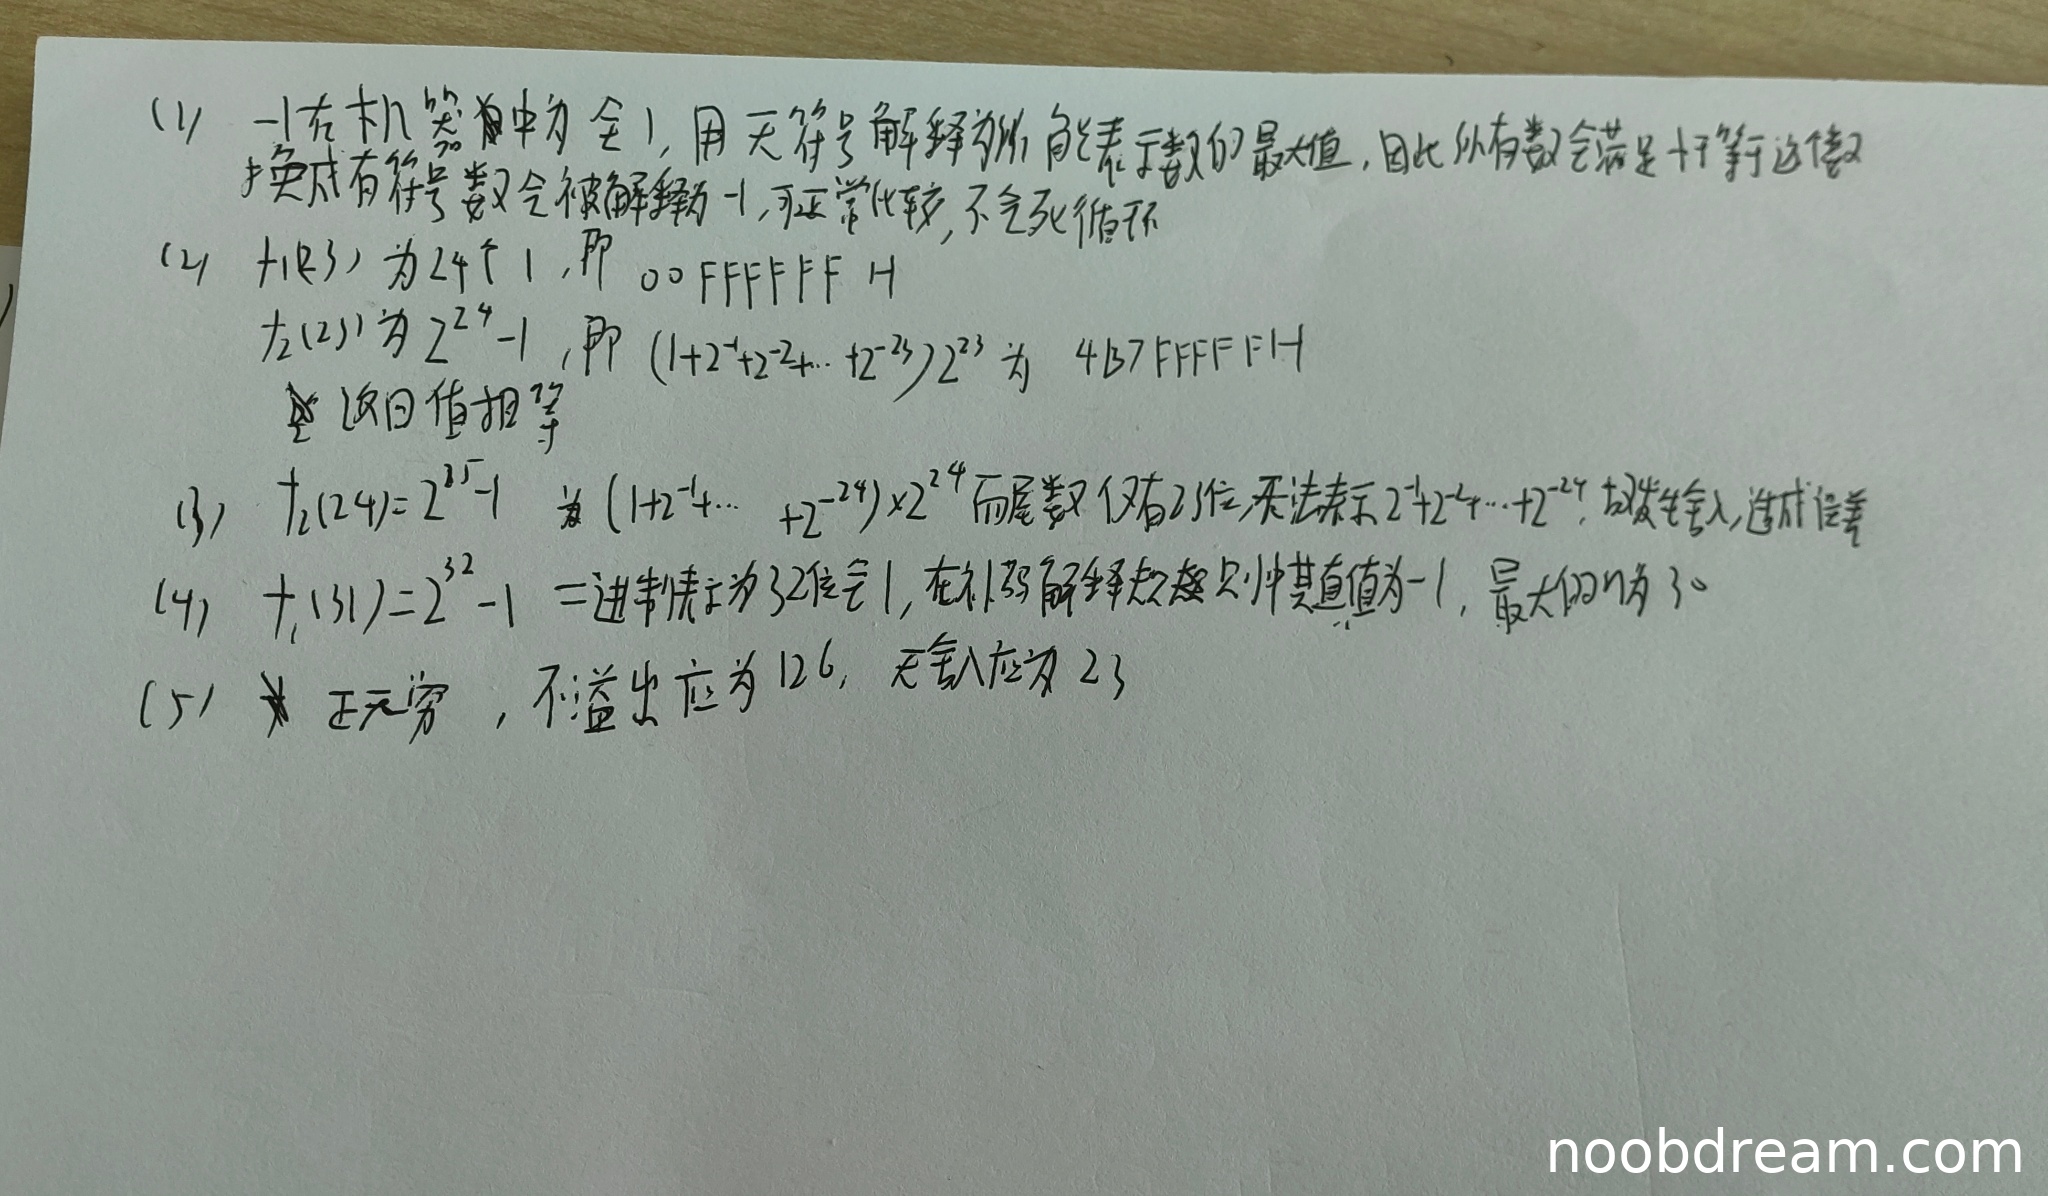 (1) -1在机器中为全1,用无符号解释为所能表示数的最大值,因此所有数会满足小于等于这个数
换成有符号数会被解释为-1,可正常比较,不会死循环
(2) f₁(23) 为24个1,即 00FFFFFFH
f₂(23)为2²⁴-1,即 (1+2⁻¹+2⁻²+…+2⁻²³)2²³ 为 4B7FFFFFH
返回值相等
(3) f₂(24)=2²⁵-1 为 (1+2⁻¹+… +2⁻²⁴)×2²⁴ 而尾数仅有23位,无法表示2⁻¹+2⁻²+…+2⁻²⁴,故发生舍入,造成误差
(4) f₁(31)=2³²-1 二进制表示为32位全1,在补码解释其真值为-1,最大的n为30
(5) 正无穷,不溢出应为126,无舍入应为23
noobdream.com